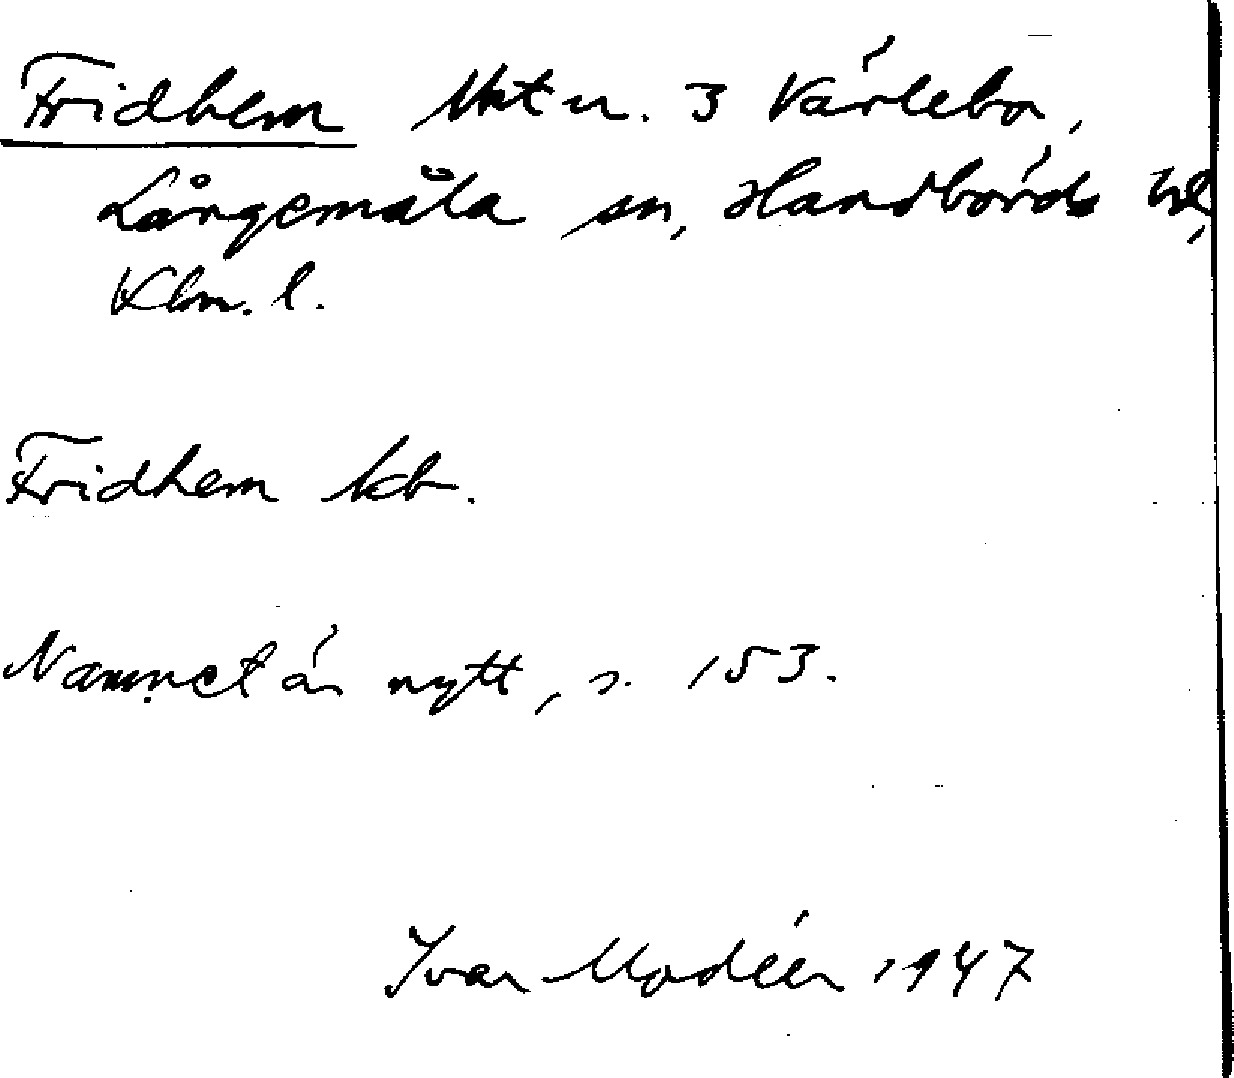 Fridhem Hkt u. 3 Värlebo,
Långemåla sn, Handbörds hd,
Klm. l.
Fridhem kb.
Namnet är nytt, s. 153.
Ivar Modéer 1947